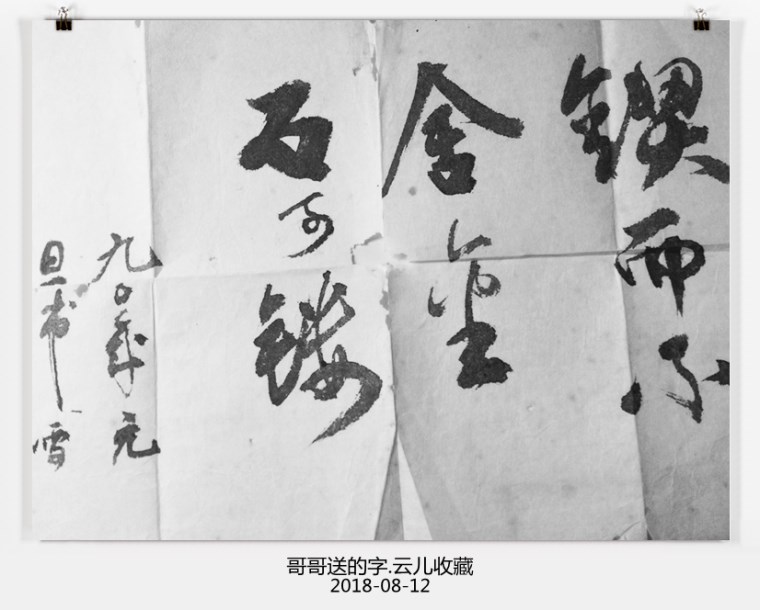 锲而不
舍金
石可镂
九〇年元
旦书雪
哥哥送的字.云儿收藏
2018-08-12